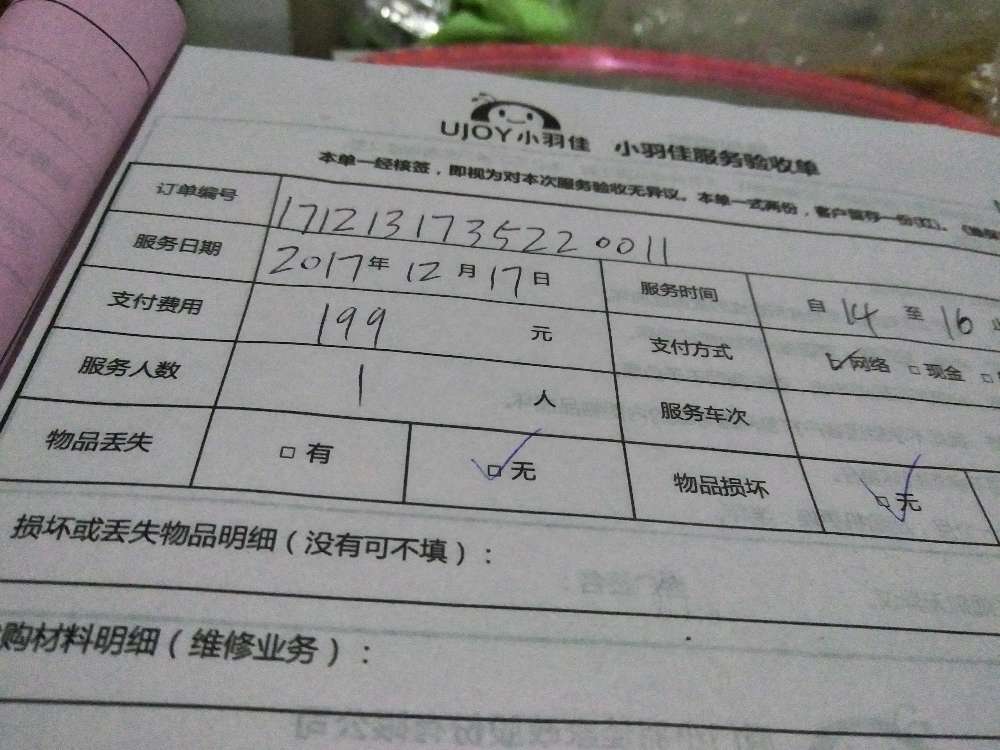 UJOY小羽佳 小羽佳服务验收单
本单一经核签，即视为对本次服务验收无异议。本单一式两份，客户留存一份(红)。
订单编号 171213173522 0011
服务日期 2017年12月17日 服务时间 自 14 至 16
支付费用 199 元 支付方式 网络 □现金 □
服务人数 1 人 服务车次
物品丢失 □有 □无 物品损坏 □无
损坏或丢失物品明细（没有可不填）：
购材料明细（维修业务）：